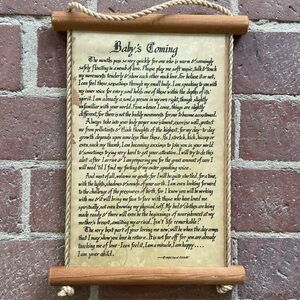 Baby's Coming
The months pass so very quickly for one who is warm & seemingly
safely floating in a world of love. Please play me soft music, talk & touch
my movements tenderly & show each other much love, for believe it or not,
I am feel these sensations through my small body. I am speaking to you with
my inner voice for every soul holds one of these within the depths of its
ego. I am already a soul, a person in my own right, though slightly
unfamiliar with your world. From whence I came, things are slightly
different, for there is not the bodily movements for one to become accustomed.
Always take into your body proper nourishment, exercise will, protect
me from pollutants & think thoughts of the highest, for my day to day
growth depends upon even less than these. So, I stretch, kick, hiccup or
even suck my thumb, I am becoming anxious to join you in your world
& sometimes trying very hard to get your attention. I will try to do this
a lot after I arrive & I am preparing you for the great amount of care I
will need 'til I find my footing & my niche speaking voice.
And most of all, welcome me gently for I will be quite startled, for a time,
with the lights, shadows & sounds of your earth. I am even looking forward
to the challenge of the pressures of birth, for I know you will be working
with me & it will bring me face to face with those who have loved me
spiritually, not even knowing my physical self. My bed & clothes are being
made ready & there will even be the beginnings of nourishment at my
mother's breast, awaiting my arrival. Isn't life remarkable?
The very best part of your loving me now, will be when the day comes
that I may show you love in return. It is not far off for you are already
teaching me of love. I can feel it, I am a miracle, I am happy . . . .
I am your child.